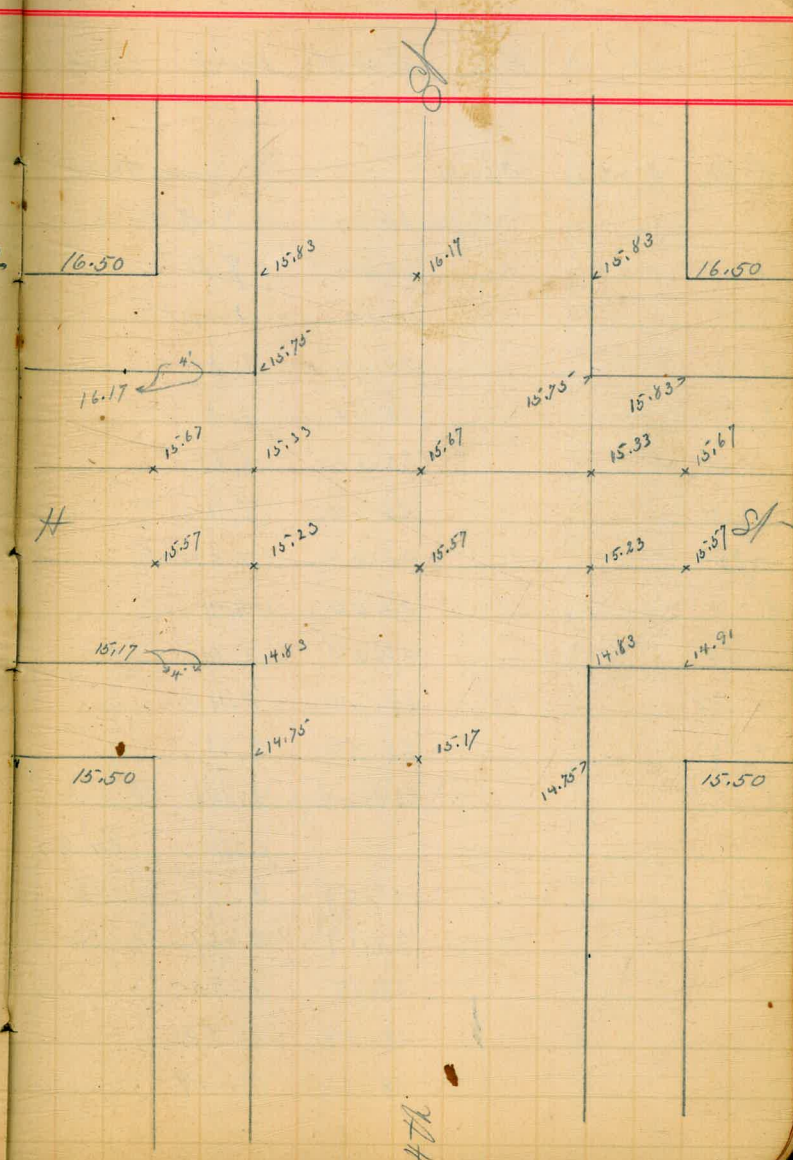 St
16.50 15.83 16.17 15.83 16.50
15.75
4'
16.17 15.75 15.83
15.67 15.33 15.67 15.33 15.67
H St
15.57 15.23 15.57 15.23 15.57
15.17 4' 14.83 14.83 14.91
14.75 15.17
15.50 14.75 15.50
4th